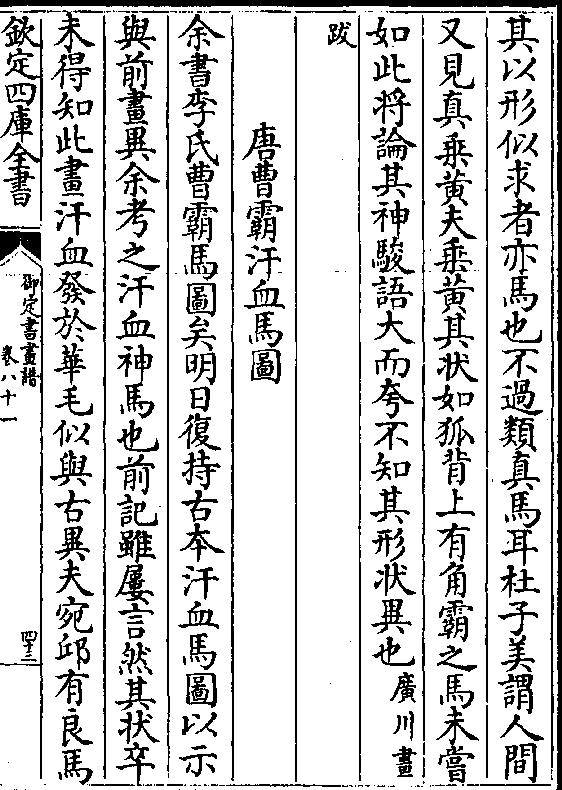 其以形似求者亦馬也不過類真馬耳杜子美謂人間
又見真乘黄夫乘黄其状如狐背上有角霸之馬未嘗
如此将論其神駿語大而夸不知其形状異也廣川畫
跋
唐曹霸汗血馬圖
余書李氏曹霸馬圖矣明日復持古本汗血馬圖以示
與前畫異余考之汗血神馬也前記雖屢言然其状卒
未得知此畫汗血發於華毛似與古異夫宛邱有良馬
欽定四庫全書
御定書畫譜
卷八十一
四十三